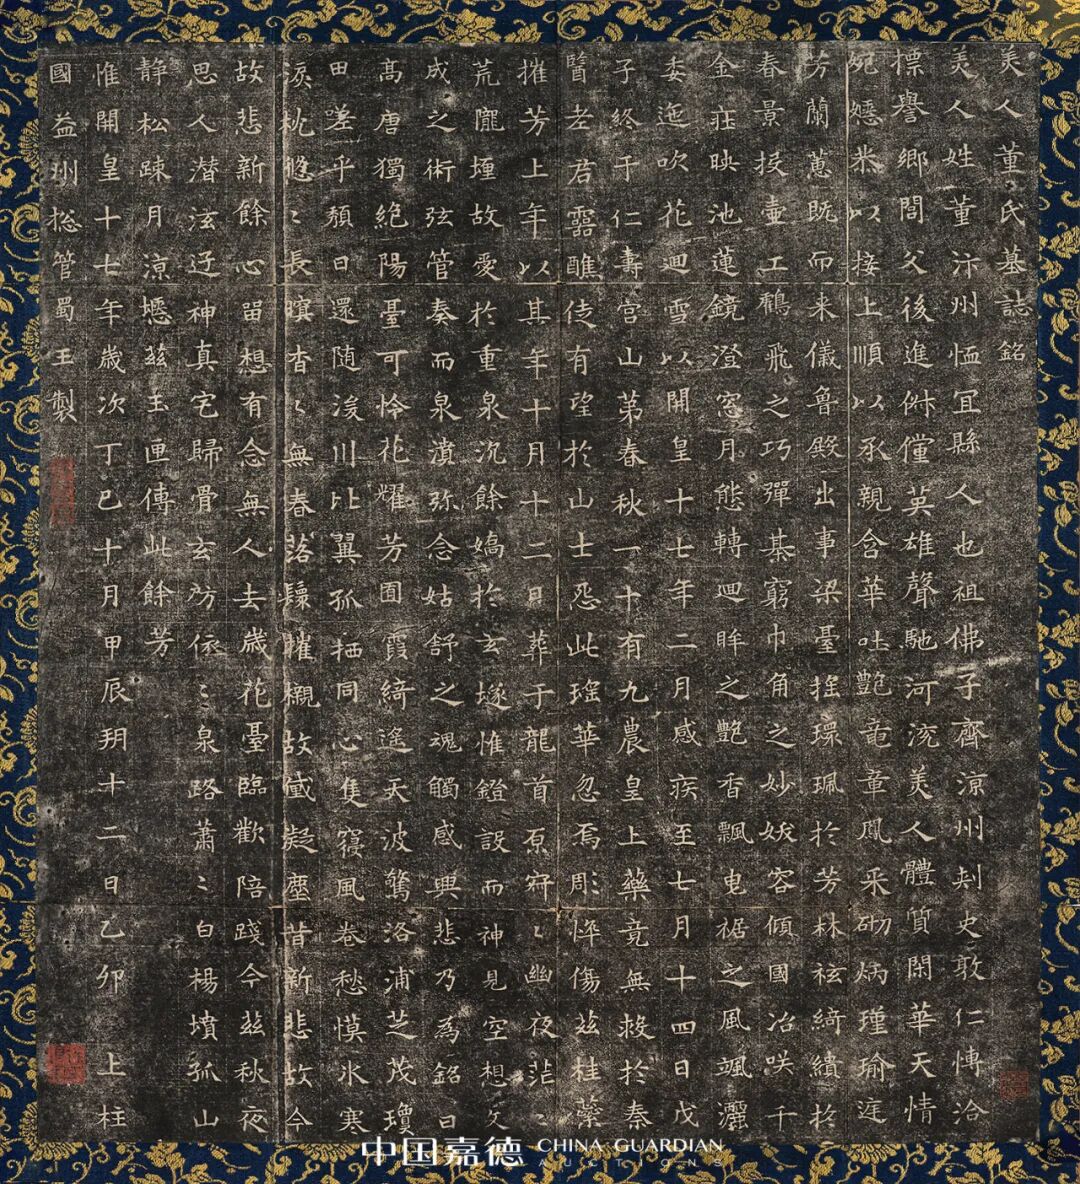 美人董氏墓誌銘
美人姓董汴州恤冝縣人也祖佛子齊涼州刾史敢仁愽洽
標譽鄉閭父後進俳儻英雄聲馳河渷美人體質閑華天情
婉嫕恭以接上順以承親含華吐艶竜章鳳采砌炳瑾瑜庭
芳蘭蕙既而来儀魯殿出事梁臺摇環珮於芳林袨綺繢於
春景投壷工鶴飛之巧彈棊窮巾角之妙妖容傾國冶咲千
金莊映池蓮鏡澄窓月態轉迴眸之艷香飄曳裾之風颯灑
委迤吹花迴雪以開皇十七年二月感疾至七月十四日戊
子終于仁壽宫山第春秋一十有九農皇上藥竟無救於秦
毉老君靈醮徒有望於山士怨此瑤華忽焉彫悴傷兹桂蘂
摧芳上年以其年十月十二日葬于龍首原寂〻幽夜茫〻
荒隴埋故愛於重泉沉餘嬌於玄墜惟鐙設而神見空想文
成之術弦管奏而泉濆弥念姑舒之魂觸感興悲乃為銘曰
髙唐獨絶陽臺可怜花耀芳囿霞綺遥天波驚洛浦芝茂瓊
田嗟乎頹日還随浚川比翼孤栖同心隻寢風卷愁慔氷寒
淚枕悠〻長暝杳〻無春落鬟摧櫬故黛凝塵昔新悲故今
故悲新餘心留想有念無人去歲花臺臨歡陪踐今兹秋夜
思人潜泫迓神真宅歸骨玄房依〻泉路蕭〻白楊墳孤山
静松疎月涼壥兹玉匣傳此餘芳
惟開皇十七年歳次丁巳十月甲辰朔十二日乙卯上柱
國益州捴管蜀王製
中国嘉德 CHINA GUARDIAN
AUCTIONS